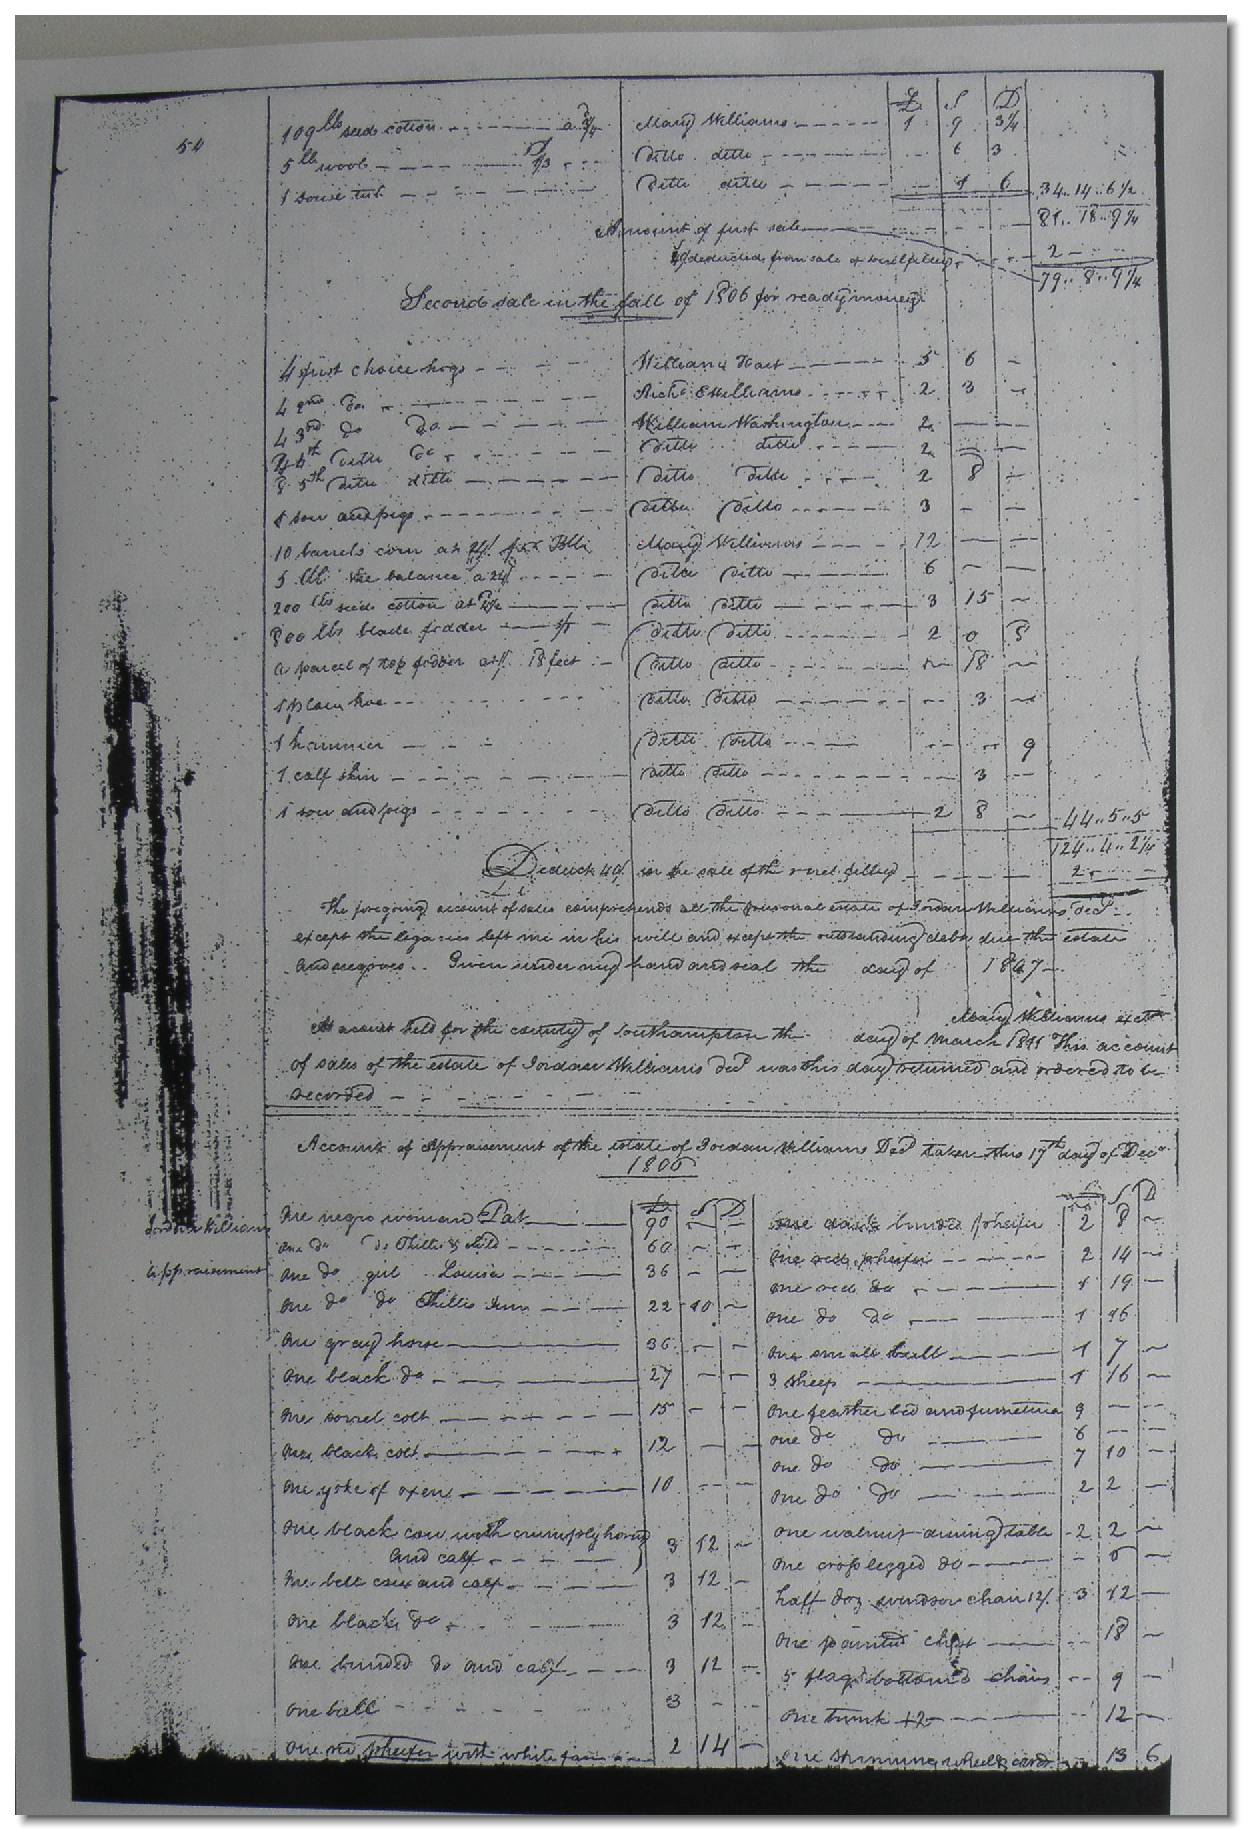 54
£ S D
109 lbs seed cotton a 3¼ Mary Williams 1 9 3¼
5 lb wool 1/3 Ditto ditto 6 3
1 souse tub Ditto ditto 1 6 34..14..6½
Amount of first sale 81..18..9¼
deducted from sale 2
79..8..9¼
Second sale in the fall of 1806 for ready money
4 first choice hogs William Hart 5 6
4 2nd do Richd Williams 2 3
4 3rd do do William Washington 2
4th ditto do ditto ditto 2
8 5th ditto ditto Ditto Ditto 2 8
1 sow and pigs Ditto Ditto 3
10 barrels corn at 24/ Mary Williams 12
5 the balance a 24/ Ditto Ditto 6
200 lbs seed cotton at Ditto Ditto 3 15
800 lbs blade fodder Ditto Ditto 2 0 8
a parcel of top fodder 18 feet Ditto Ditto 18
1 hoe Ditto Ditto 3
1 hammer Ditto Ditto 9
1 calf skin Ditto Ditto 3
1 sow and pigs Ditto Ditto 2 8 44..5..5
124..4..2¼
Deduct 40/ in the sale of the 2
The foregoing account of sales comprehends all the personal estate of Jordan Williams decd
except the legacies left me in his will and except the outstanding debts due the estate
and negroes.. Given under my hand and seal the day of 1807
Mary Williams exetx
At a court held for the county of Southampton the day of March 1811 This account
of sales of the estate of Jordan Williams decd was this day returned and ordered to be
recorded
Account of Appraisement of the estate of Jordan Williams Decd taken this 17th day of Decr
1806
Jordan Williams
Appraisement
£ S D
One negro woman Pat 90
one do do Phillis & child 60
One do girl Louisa 36
One do do Phillis Junr 22 10
One gray horse 36
One black do 27
One sorrel colt 15
One black colt 12
One yoke of oxen 10
One black cow with crumply horns
and calf 3 12
One bell cow and calf 3 12
One black do 3 12
One brinded do and calf 3 12
One bull 3
One red pheifer with white face 2 14
£ S D
One brinded pheifer 2 8
One red pheifer 2 14
One red do 1 19
One do do 1 16
One small bull 1 7
3 sheep 1 16
One feather bed and furniture 9
one do do 6
One do do 7 10
One do do 2 2
One walnut dining table 2 2
One cross legged do 6
half doz windsor chairs 12/ 3 12
One painted chest 18
5 flag bottomed chairs 9
One trunk 12 12
One spinning wheel & cards 13 6